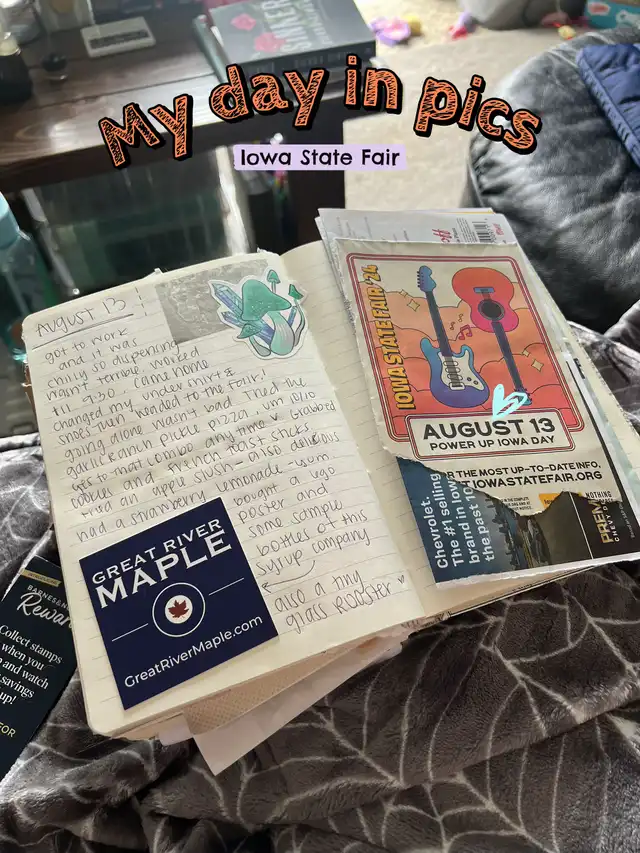 My day in pics
Iowa State Fair
AUGUST 13
got to work
and it was
chilly so dispensing
wasn't terrible. worked
till 9:30. came home
changed my undershirt &
shoes then headed to the fair!
going alone wasn't bad. Tried the
garlic ranch pickle pizza - um 10/10
yes to that combo anytime ♥ Grabbed
cookies and french toast sticks
had an apple slush - also delicious
had a strawberry lemonade - yum
bought a logo
poster and
some sample
bottles of this
syrup company
also a tiny
glass rooster ♥
GREAT RIVER
MAPLE
GreatRiverMaple.com
BARNES&N
Rewar
Collect stamps
when you
and watch
savings
up!
FOR
IOWA STATE FAIR '24
AUGUST 13
POWER UP IOWA DAY
R THE MOST UP-TO-DATE INFO,
IOWASTATEFAIR.ORG
Chevrolet.
The #1 selling
brand in Iow
the past 10
NOTHING
PREM
CHEVY DE
off